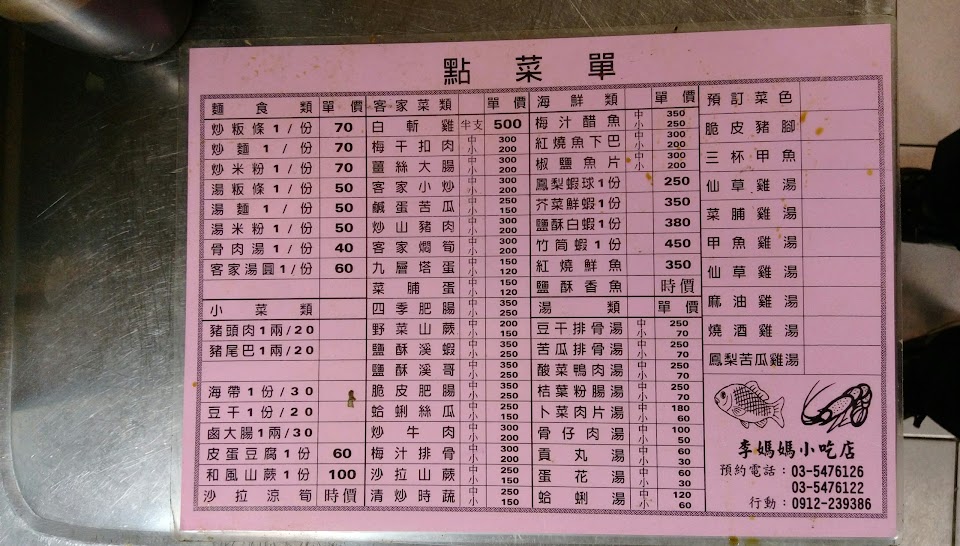 點菜單
麵食類 單價
炒粄條1/份 70
炒麵1/份 70
炒米粉1/份 70
湯粄條1/份 50
湯麵1/份 50
湯米粉1/份 50
骨肉湯1/份 40
客家湯圓1/份 60
小菜類
豬頭肉1兩/20
豬尾巴1兩/20
海帶1份/30
豆干1份/20
鹵大腸1兩/30
皮蛋豆腐1份 60
和風山蕨1份 100
沙拉涼筍 時價
客家菜類 單價
白斬雞 半支 500
梅干扣肉 中 300 小 200
薑絲大腸 中 300 小 200
客家小炒 中 300 小 200
鹹蛋苦瓜 中 250 小 150
炒山豬肉 中 300 小 200
客家燜筍 中 300 小 200
九層塔蛋 中 150 小 120
菜脯蛋 中 150 小 120
四季肥腸 中 350 小 250
野菜山蕨 中 200 小 150
鹽酥溪蝦 中 350 小 250
鹽酥溪哥 中 350 小 250
脆皮肥腸 中 350 小 250
蛤蜊絲瓜 中 250 小 150
炒牛肉 中 300 小 200
梅汁排骨 中 300 小 200
沙拉山蕨 中 250 小 150
清炒時蔬 中 250 小 150
海鮮類 單價
梅汁醋魚 中 350 小 250
紅燒魚下巴 中 300 小 200
椒鹽魚片 中 300 小 200
鳳梨蝦球1份 250
芥菜鮮蝦1份 350
鹽酥白蝦1份 380
竹筒蝦1份 450
紅燒鮮魚 350
鹽酥香魚 時價
湯類 單價
豆干排骨湯 中 250 小 70
苦瓜排骨湯 中 250 小 70
酸菜鴨肉湯 中 250 小 70
桔葉粉腸湯 中 250 小 70
卜菜肉片湯 中 180 小 60
骨仔肉湯 中 100 小 50
貢丸湯 中 60 小 30
蛋花湯 中 60 小 30
蛤蜊湯 中 120 小 60
預訂菜色
脆皮豬腳
三杯甲魚
仙草雞湯
菜脯雞湯
甲魚雞湯
仙草雞湯
麻油雞湯
燒酒雞湯
鳳梨苦瓜雞湯
李媽媽小吃店
預約電話:03-5476126
03-5476122
行動:0912-239386